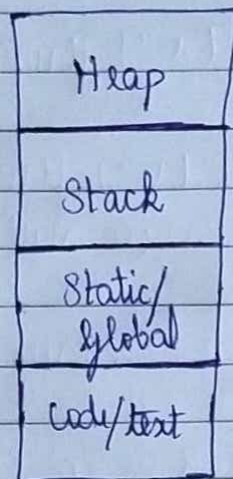 Heap
Stack
Static/
Global
Code/text